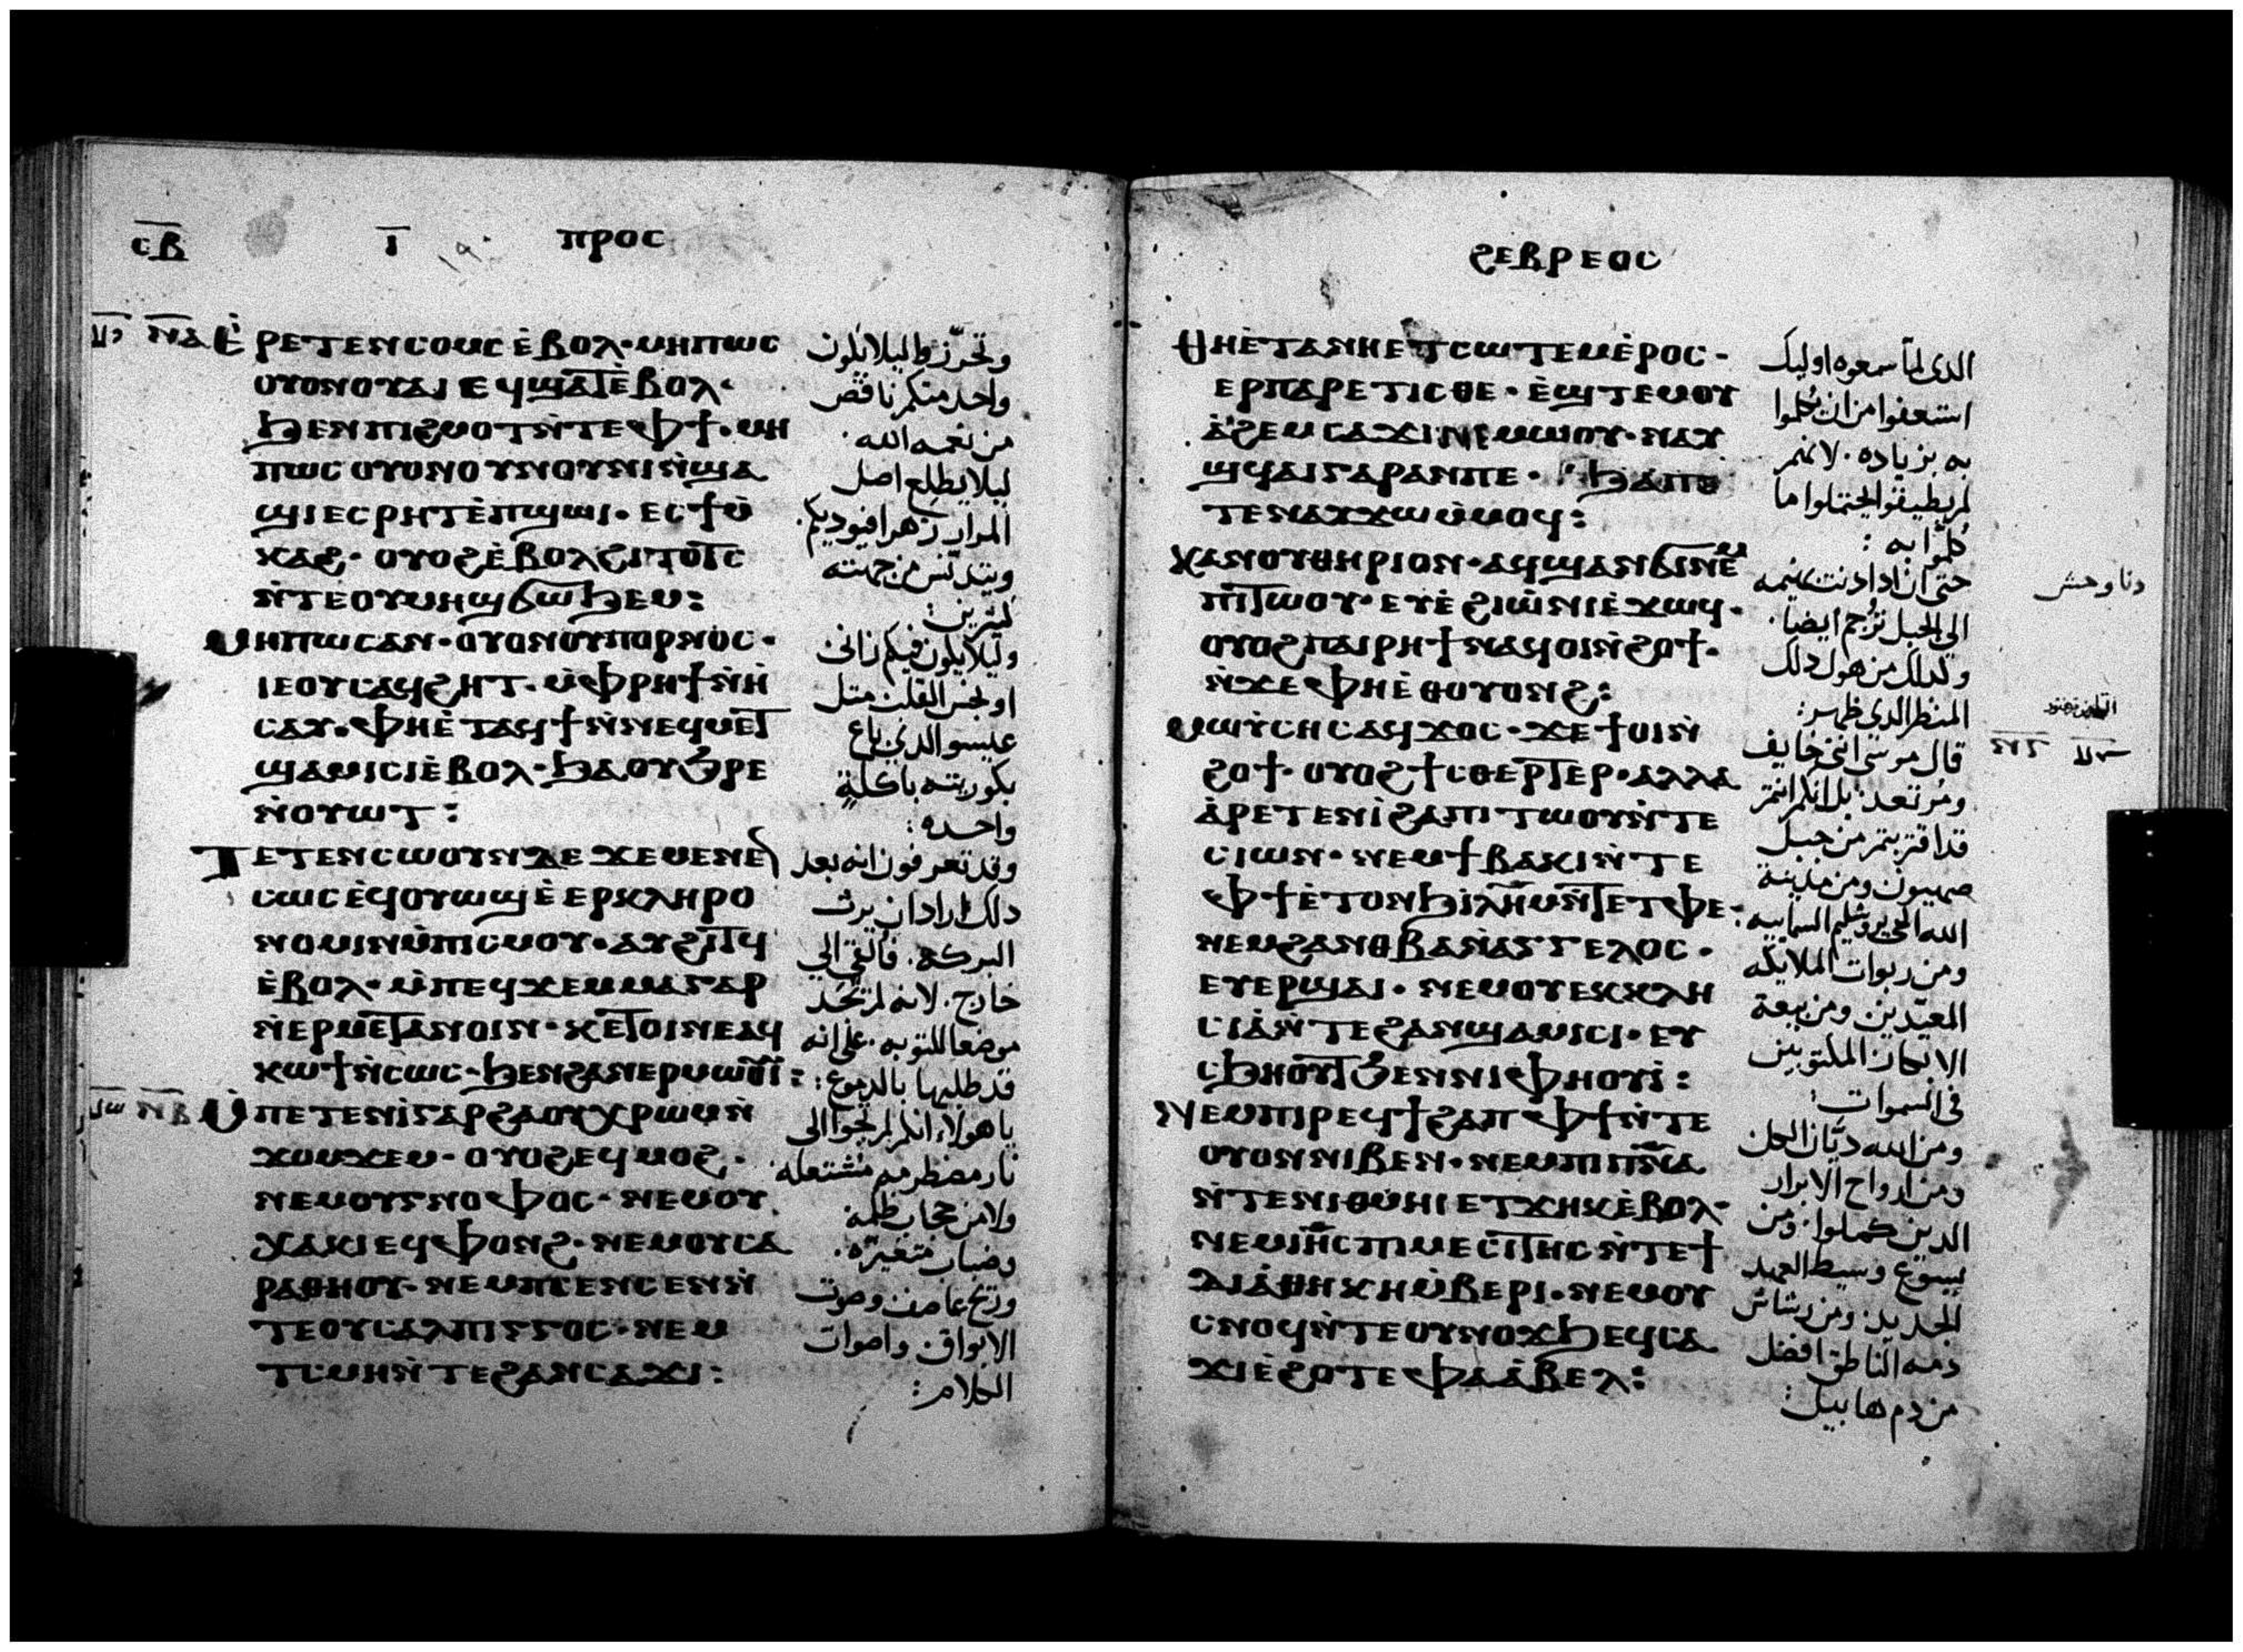 ⲥ̅ⲃ̅ ⲓ̅ ⲡⲣⲟⲥ
ⲛ̅ⲁ̅ ⲉ̀ⲣⲉⲧⲉⲛⲥⲟⲙⲥ ⲉ̀ⲃⲟⲗ· ⲙⲏⲡⲱⲥ
ⲟⲩⲟⲛⲟⲩⲁⲓ ⲉϥϣⲁⲧⲉ̀ⲃⲟⲗ·
ϧⲉⲛⲡⲓϩⲙⲟⲧⲛ̀ⲧⲉⲫϯ· ⲙⲏ
ⲡⲱⲥ ⲟⲩⲟⲛⲟⲩⲛⲟⲩⲛⲓⲛ̀ϣⲁ
ϣⲓⲉⲥⲣⲏⲧⲉ̀ⲡϣⲱⲓ· ⲉⲥϯⲙ̀
ⲕⲁϩ· ⲟⲩⲟϩⲉ̀ⲃⲟⲗϩⲓⲧⲟⲧⲥ
ⲛ̀ⲧⲉⲟⲩⲙⲏϣϭⲱϧⲉⲙ:
ⲙⲏⲡⲱⲥⲁⲛ· ⲟⲩⲟⲛⲟⲩⲡⲟⲣⲛⲟⲥ·
ⲓⲉⲟⲩⲥⲁϥϩⲏⲧ· ⲙ̀ⲫⲣⲏϯⲛ̀ⲏ̀
ⲥⲁⲩ· ⲫⲏⲉ̀ⲧⲁϥϯⲛ̀ⲛⲉϥⲙⲉⲧ
ϣⲁⲙⲓⲥⲓⲉ̀ⲃⲟⲗ· ϧⲁⲟⲩϧ̀ⲣⲉ
ⲛ̀ⲟⲩⲱⲧ:
ⲧⲉⲧⲉⲛⲥⲱⲟⲩⲛⲇⲉ ϫⲉⲙⲉⲛⲉⲛ
ⲥⲱⲥ ⲉϥⲟⲩⲱϣ ⲉ̀ⲉⲣⲕⲗⲏⲣⲟ
ⲛⲟⲙⲓⲛⲙ̀ⲡⲓⲥⲙⲟⲩ· ⲁⲩϩⲓⲧϥ
ⲉ̀ⲃⲟⲗ· ⲙ̀ⲡⲉϥϫⲉⲙⲙⲁⲅⲁⲣ
ⲛ̀ⲉⲣⲙⲉⲧⲁⲛⲟⲓⲛ· ⲕⲉⲧⲟⲓⲛⲉⲁϥ
ⲕⲱϯⲛ̀ⲥⲱⲥ· ϧⲉⲛϩⲁⲛⲉⲣⲙⲱⲟⲩⲓ̀:
ⲛ̅ⲃ̅ ⲙ̀ⲡⲉⲧⲉⲛⲓ̀ⲅⲁⲣϩⲁⲟⲩⲭⲣⲱⲙⲛ̀
ϫⲟⲙϫⲉⲙ· ⲟⲩⲟϩⲉϥⲙⲟϩ·
ⲛⲉⲙⲟⲩⲅⲛⲟⲫⲟⲥ· ⲛⲉⲙⲟⲩ
ⲭⲁⲕⲓⲉϥⲫⲟⲛϩ· ⲛⲉⲙⲟⲩⲥⲁ
ⲣⲁⲑⲏⲟⲩ· ⲛⲉⲙⲡⲥⲉⲛⲥⲉⲛⲛ̀
ⲧⲉⲟⲩⲥⲁⲗⲡⲓⲅⲅⲟⲥ· ⲛⲉⲙ
ⲧⲥⲙⲏⲛ̀ⲧⲉϩⲁⲛⲥⲁϫⲓ:
وتحرزوا ليلا يكون
واحد منكم ناقص
من نعمه الله
ليلا يطلع اصل
المرار زهرا فيوديكم
ويتدنس من جهته
كثيرين:
وليلا يكون فيكم زاني
او نجس القلب مثل
عيسو الذي باع
بكوريته باكلةٍ
واحده:
وقد تعرفون انه بعد
ذلك اراد ان يرث
البركه. فالقي الي
خارج. لانه لم يجد
موضعا للتوبه. علي انه
قد طلبها بالدموع:
يا هولاء انكم لم تجوا الى
نار مضطرمه مشتعله
ولا من حجاب ظلمة
وضباب متغيره.
وريح عاصف وصوت
الابواق واصوات
الكلام:
ϩⲉⲃⲣⲉⲟⲥ
ⲑⲏⲉ̀ⲧⲁⲛⲏⲉⲧⲥⲱⲧⲉⲙⲉ̀ⲣⲟⲥ·
ⲉⲣⲡⲁⲣⲉⲧⲓⲥⲑⲉ· ⲉ̀ϣⲧⲉⲙⲟⲩ
ⲁ̀ϩⲉⲙⲥⲁϫⲓⲛⲉⲙⲱⲟⲩ· ⲛⲁⲩ
ϣϥⲁⲓⲅⲁⲣⲁⲛⲡⲉ· ϧⲁⲡⲉ
ⲧⲉⲛⲁⲩϫⲱⲙ̀ⲙⲟϥ:
ⲕⲁⲛⲟⲩⲑⲏⲣⲓⲟⲛ· ⲁϥϣⲁⲛϭⲓⲛⲉⲙ
ⲡⲓⲧⲱⲟⲩ· ⲉⲩⲉ̀ϩⲓⲱ̀ⲛⲓⲉ̀ϫⲱϥ·
ⲟⲩⲟϩⲡⲁⲓⲣⲏϯⲛⲁϥⲟⲓⲛ̀ϩⲟϯ·
ⲛ̀ϫⲉⲫⲏⲉ̀ⲑⲟⲩⲟⲛϩ:
ⲙⲱⲩ̀ⲥⲏⲥⲁϥϫⲟⲥ· ϫⲉϯⲟⲓⲛ̀
ϩⲟϯ· ⲟⲩⲟϩϯⲥⲑⲉⲣⲧⲉⲣ· ⲁⲗⲗⲁ
ⲁ̀ⲣⲉⲧⲉⲛⲓ̀ϩⲁⲡⲓⲧⲱⲟⲩⲛ̀ⲧⲉ
ⲥⲓⲱⲛ· ⲛⲉⲙϯⲃⲁⲕⲓⲛ̀ⲧⲉ
ⲫϯⲉ̀ⲧⲟⲛϧⲓⲗⲏⲙⲛ̀ⲧⲉⲧⲫⲉ·
ⲛⲉⲙϩⲁⲛⲑⲃⲁⲛ̀ⲁⲅⲅⲉⲗⲟⲥ·
ⲉⲩⲉⲣϣⲁⲓ· ⲛⲉⲙⲟⲩⲉⲕⲕⲗⲏ
ⲥⲓⲁ̀ⲛ̀ⲧⲉϩⲁⲛϣⲁⲙⲓⲥⲓ· ⲉⲩ
ⲥϧⲏⲟⲩⲧϧⲉⲛⲛⲓⲫⲏⲟⲩⲓ̀:
ⲛⲉⲙⲡⲓⲣⲉϥϯϩⲁⲡ ⲫϯⲛ̀ⲧⲉ
ⲟⲩⲟⲛⲛⲓⲃⲉⲛ· ⲛⲉⲙⲡⲓⲡ̅ⲛ̅ⲁ̅
ⲛ̀ⲧⲉⲛⲓⲑⲙⲏⲓ ⲉⲧϫⲏⲕⲉ̀ⲃⲟⲗ·
ⲛⲉⲙⲓⲏ̅ⲥ ⲡⲓⲙⲉⲥⲓⲧⲏⲥ ⲛ̀ⲧⲉϯ
ⲇⲓⲁ̀ⲑⲏⲕⲏⲙ̀ⲃⲉⲣⲓ· ⲛⲉⲙⲟⲩ
ⲥⲛⲟϥⲛ̀ⲧⲉⲟⲩⲛⲟϫϧⲉϥⲥⲁ
ϫⲓⲉ̀ϩⲟⲧⲉⲫⲁⲁ̀ⲃⲉⲗ:
الذي لما سمعوه اوليك
استعفوا من ان يكلموا
به بزياده. لانهم
لم يطيقوا يحتملوا ما
كلموا به:
حتي ان اذا دنت بهيمه
الى الجبل ترجم ايضا.
وكذلك من هول ذلك
المنظر الذي ظهر:
قال موسى انني خايف
ومرتعد. بل انكم انتم
قد اقتربتم من جبل
صهيون ومن مدينة
الله الحي يروشليم السمايه
ومن ربوات الملايكه
المعيدين ومن بيعة
الابكار المكتوبين
في السموات:
ومن الله ديان الكل
ومن ارواح الابرار
الذين كملوا. ومن
يسوع وسيط العهد
الجديد. ومن رشاش
دمه الناطق افضل
من دم هابيل:
دنا وحش
ⲛ̅ⲅ̅